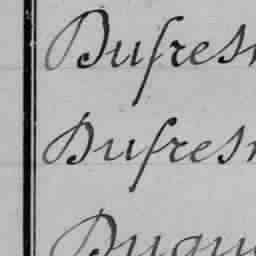 Dufresn
Dufresn
Dugu